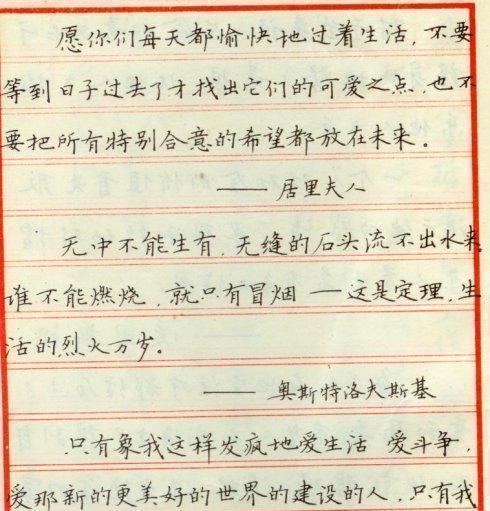 愿你们每天都愉快地过着生活,不要
等到日子过去了才找出它们的可爱之点,也不
要把所有特别合意的希望都放在未来。
——居里夫人
无中不能生有,无缝的石头流不出水来。
谁不能燃烧,就只有冒烟——这是定理,生
活的烈火万岁。
——奥斯特洛夫斯基
只有象我这样发疯地爱生活 爱斗争,
爱那新的更美好的世界的建设的人,只有我